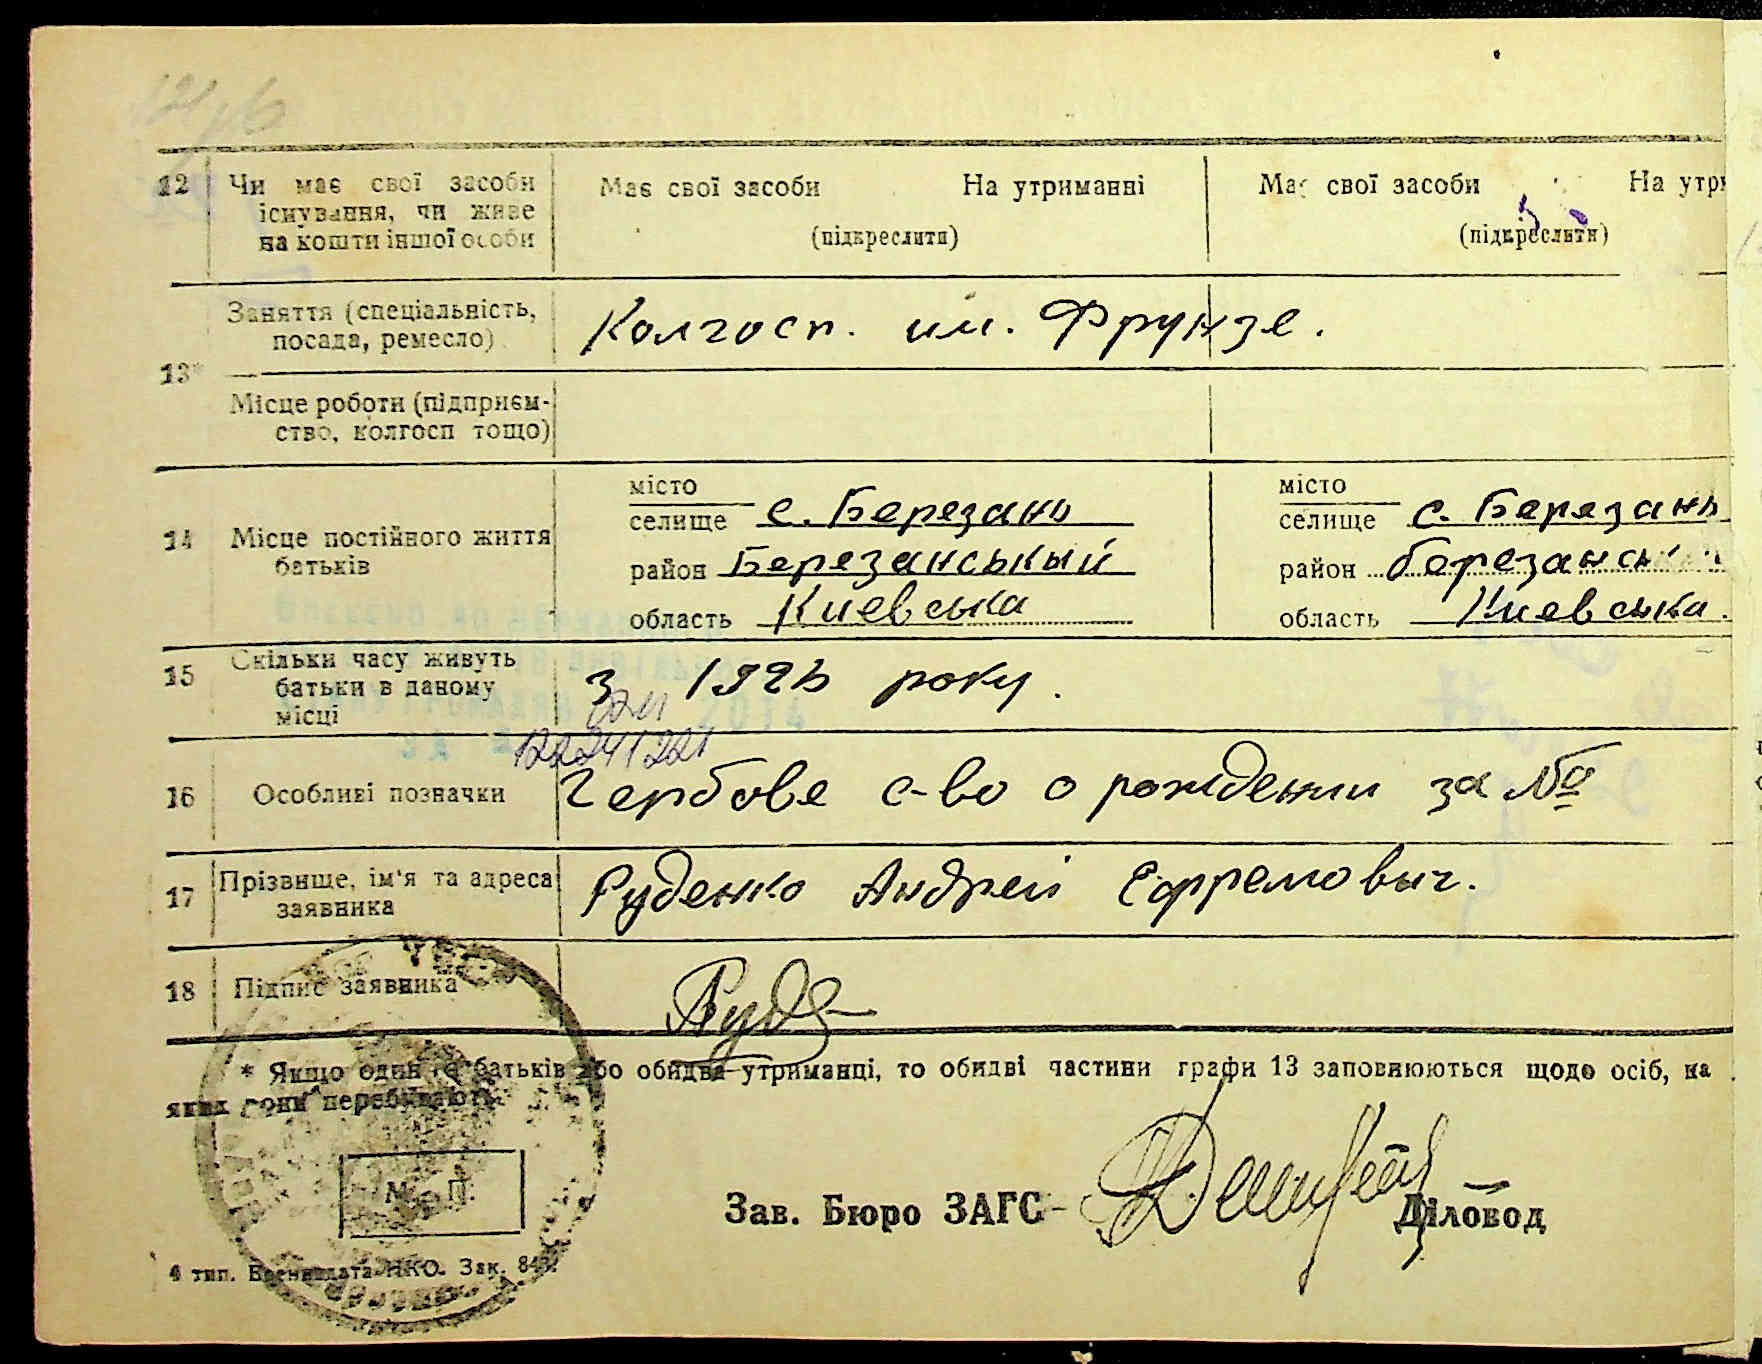 12 Чи має свої засоби існування, чи живе на кошти іншої особи
Має свої засоби На утриманні
(підкреслити)
Має свої засоби На утри
(підкреслити)
13*
Заняття (спеціальність, посада, ремесло)
Колгосп. им. Фрунзе.
Місце роботи (підприєм-
ство, колгосп тощо)
14 Місце постійного життя батьків
місто
селище с. Березань
район Березанськый
область Киевська
місто
селище с. Березань
район березанськ
область Киевська.
15 Скільки часу живуть батьки в даному місці
з року.
2014
16 Особливі позначки
Гербове с-во о рождении за №
17 Прізвище, ім'я та адреса заявника
Руденко Андрей Ефремовыч.
18 Підпис заявника
Руде
* Якщо один із батьків або обидва утриманці, то обидві частини графи 13 заповнюються щодо осіб, на
яких вони перебувають
М. П.
Зав. Бюро ЗАГС Діловод
тип. НКО. Зак.